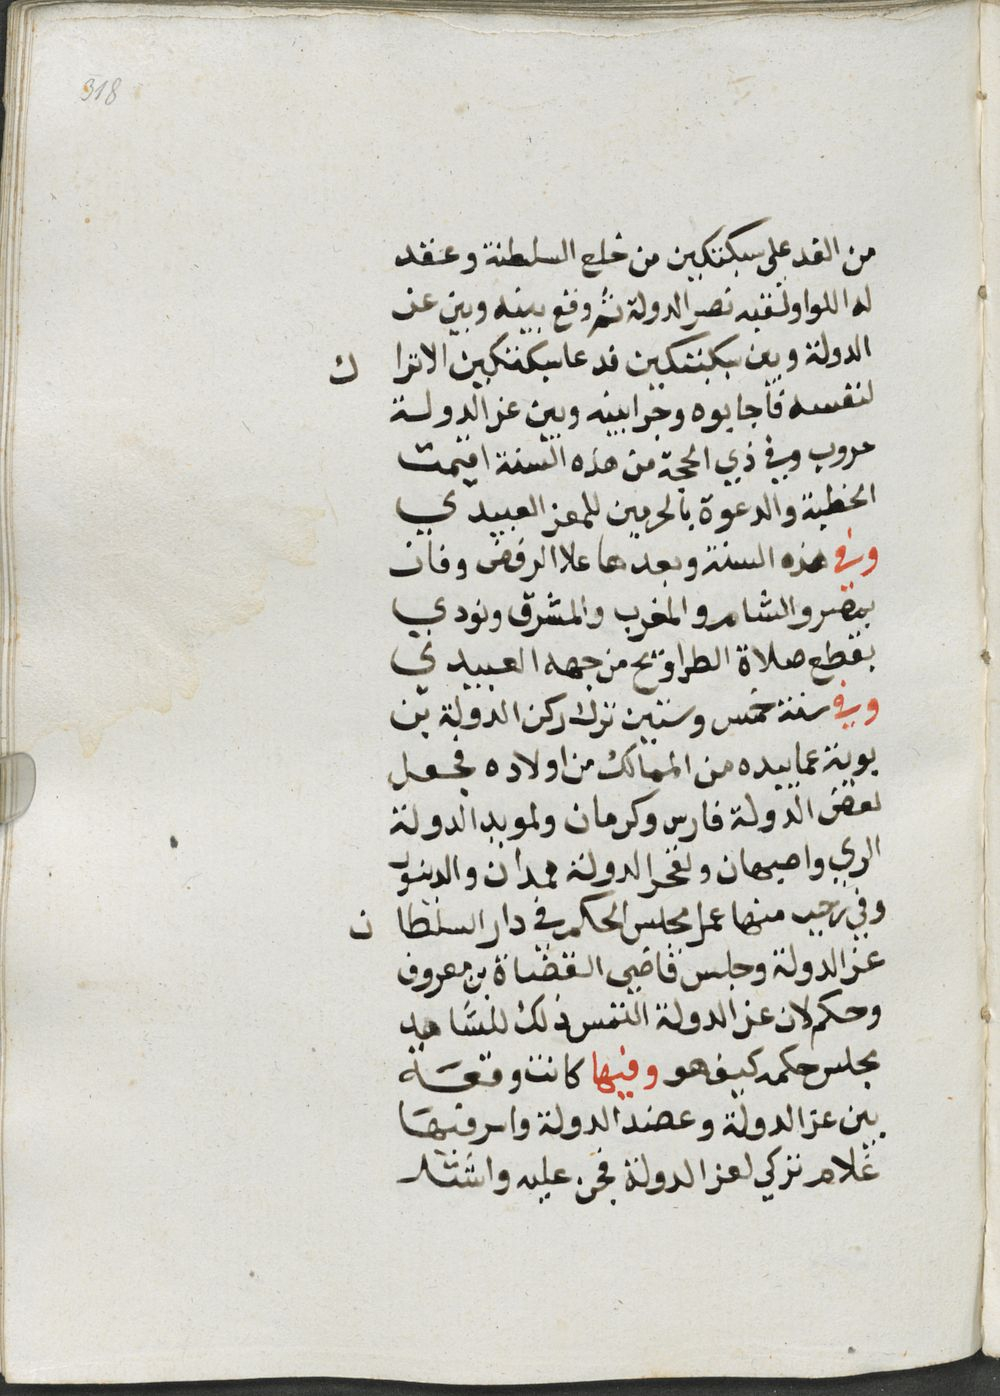 318
من الغد على سبكتكين من خلع السلطنة وعقد
له اللوا ولقبه نصر الدولة ثم وقع بينه وبين عز
الدولة وبين سبكتكين فدعا سبكتكين الاترا ك
لنفسه فاجابوه وجرا بينه وبين عز الدولة
حروب وفي ذي الحجة من هذه السنة اقيمت
الخطبة والدعوة بالحرمين للمعز العبيدي
وفي هذه السنة وبعدها علا الرفض وفان
بمصر والشام والمغرب والمشرق ونودي
بقطع صلاة الطراويح من جهه العبيدي
وفي سنة خمس وستين نزل ركن الدولة بن
بوية عما بيده من الممالك من اولاده فجعل
لعضد الدولة فارس وكرمان ولمويد الدولة
الري واصبهان ولفخر الدولة همدان والدينور
وفي رجب منها عمل مجلس الحكم في دار السلطا ن
عز الدولة وجلس قاضي القضاة بن معروف
وحكم لان عز الدولة التمس ذلك للمشاهد
مجلس حكمه كيف هو وفيها كانت وقعة
بين عز الدولة وعضد الدولة واسر فيها
غلام تركي لعز الدولة فجن عليه واشتد